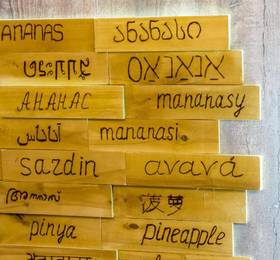 ANANAS ანანასი
АНАНАС mananasy
آناناس mananasi
sazdin avavá
菠萝
pinya pineapple